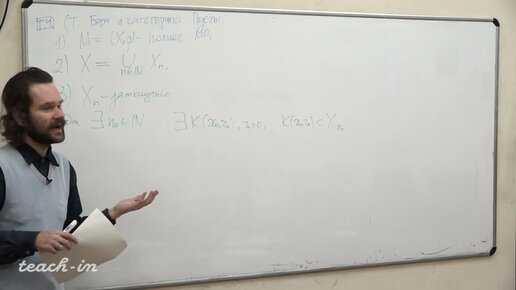 T4 (Т. Бэра о категориях) Пусть
1) M=(X,ρ)-полное МП,
2) X = ⋃ Xₙ,
n∈ℕ
3) Xₙ-замкнутые
∃ n₀∈ℕ ∃ K(x₀,r₀), r₀>0, K(x₀,r₀)⊂Xₙ₀
teach-in